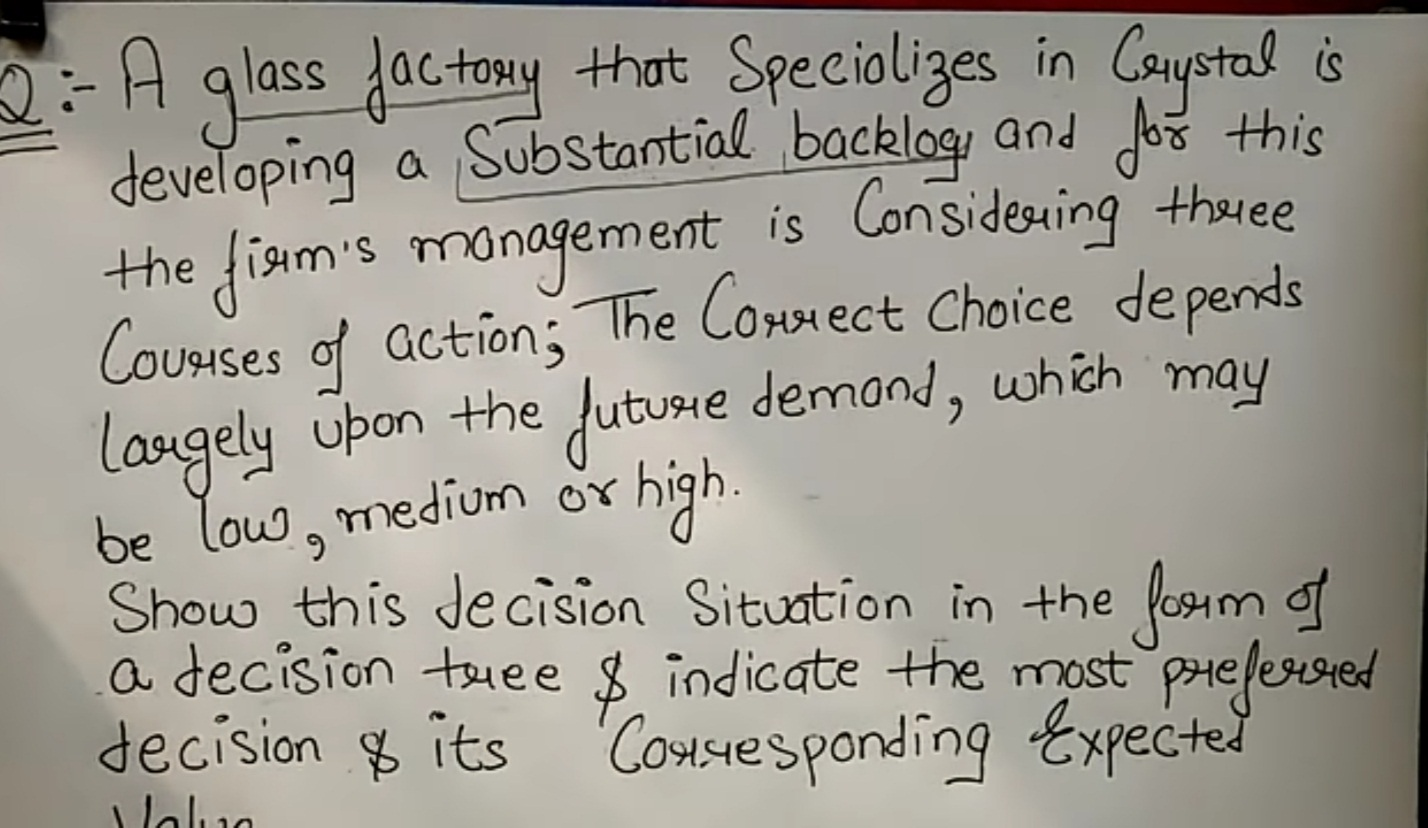 Q:- A glass factory that Specializes in Crystal is
developing a Substantial backlog and for this
the firm's management is Considering three
Courses of action; The Correct Choice depends
largely upon the future demand, which may
be low, medium or high.
Show this decision Situation in the form of
a decision tree & indicate the most preferred
decision & its Corresponding Expected
Value